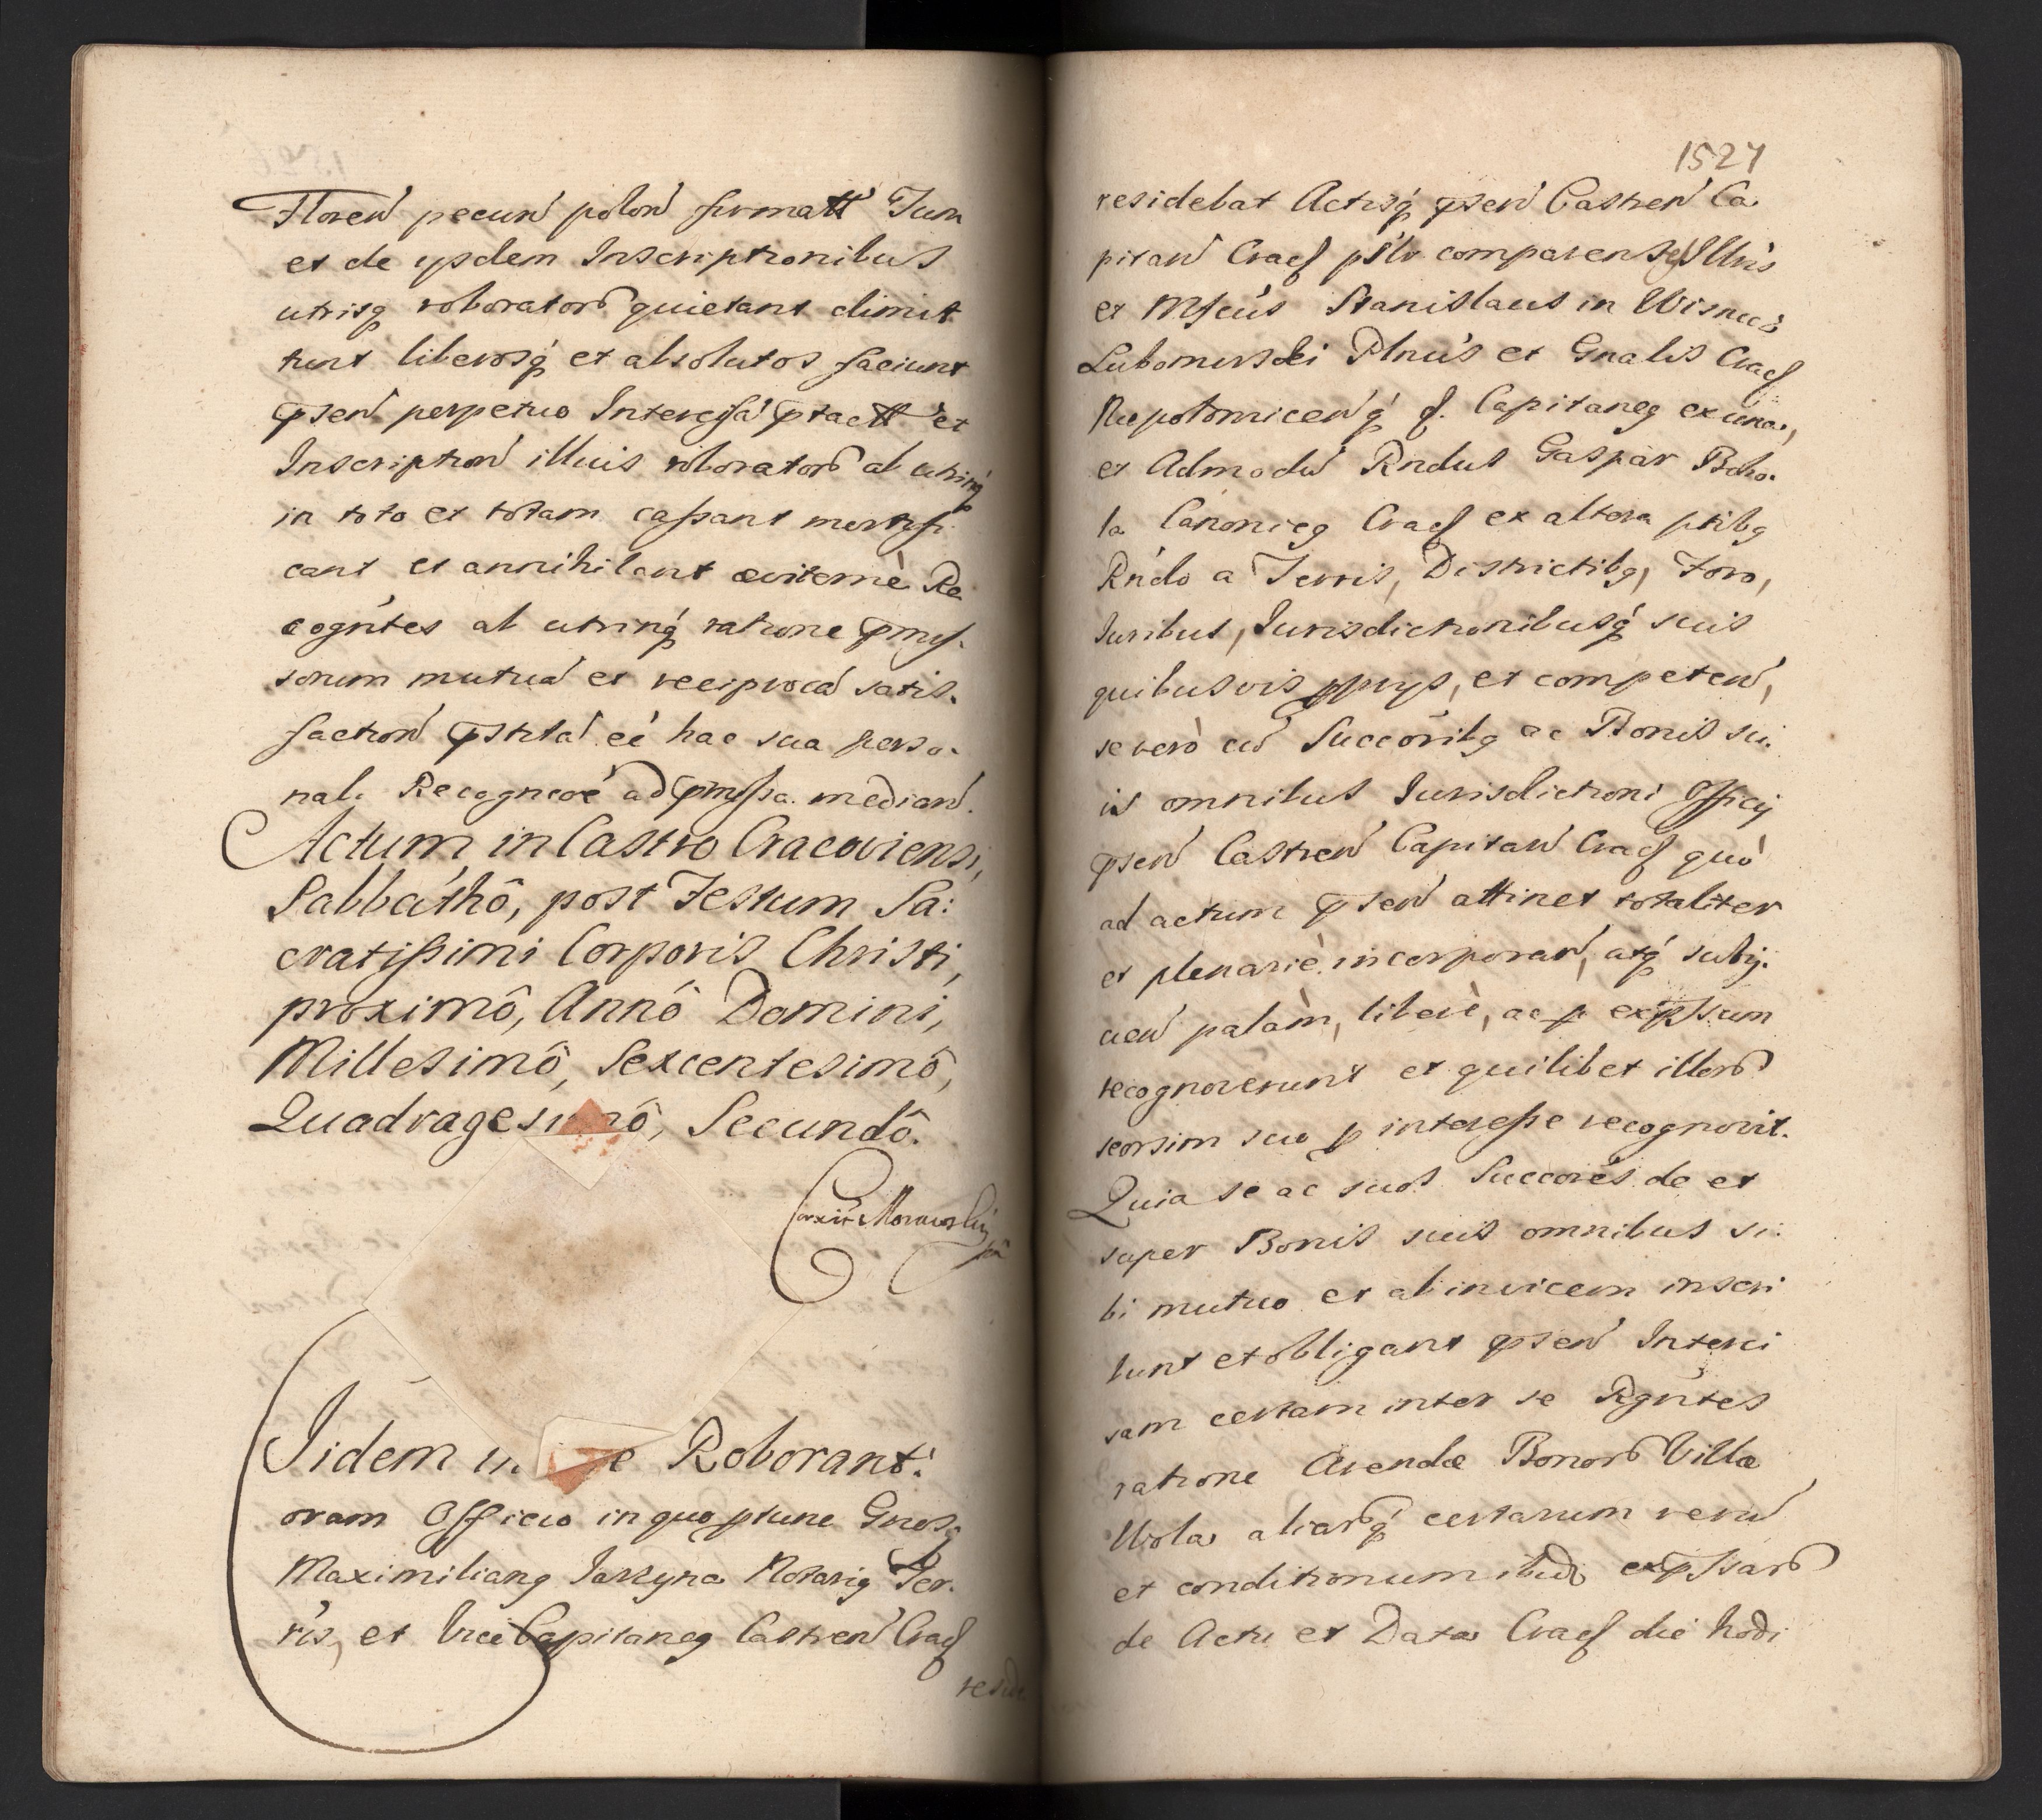 Floreń pecuń poloń firmatt Tum
et de ijsdem Inscriptionibus
utrisq roborator quietant dimit
tunt liberosq et absolutos faciunt
pseń perpetuo Intercisá ptactt et
Inscriptioń illius roborator ab utrinq
in toto et totam cassant mortifi.
cant et annihilant æviternè Re
cogńtes ab utrinq ratione pmis.
sorum mutuá et reciprocá satis.
factioń pstitá eé hac sua perso.
nali Recogneoé ad pmissa median.
Actum in Castro Cracoviensi,
Sabbathô, post Festum Sa:
cratissimi Corporis Christi,
proximô, Annô Domini,
Millesimô, Sexcentesimô,
Quadragesimô, Secundô.
Iidem Roborant:
oram Officio in quo ptunc Gnosq
Maximilianq Jarzyna Notariq Ter.
ris, et ViceCapitaneq Castreń Cracs
resid
1527
residebat Actisq pseń Castreń Ca
pitań Cracs pslr comparentes Illris
et Mfcus Stanislaus in Wisnicz
Lubomirski Plnus et Gnalis Cracs
Niepolomiceńq s. Capitaneq ex una,
et Admodú Rndus Gaspar Bobo.
la Canonicq Cracs ex altera ptibq
Rńdo a Terris, Districtibq, Foro,
Iuribus, Iurisdictionibusq suis
quibusvis pprijs, et competeń,
se verò cú Succoribq ac Bonis su.
is omnibus Iurisdictioni Officij
pseń Castreń Capitań Cracs quò
ad actum pseń attinet totaliter
et plenariè incorporań, atq subij.
cień palàm, liberè, ac p expssum
recognoverunt et quilibet illor
seorsim suo p interesse recognovit.
Quia se ac suos Succorés de et
super Bonis suis omnibus si.
bi mutuo et ab invicem inscri
bunt et obligant pseń Interci
sam certam inter se Rgńtes
ratione Arendæ Bonor Villæ
Wola aliarq certarum rerú
et conditionum ibid expssar
de Actu et Data Cracs die hodi